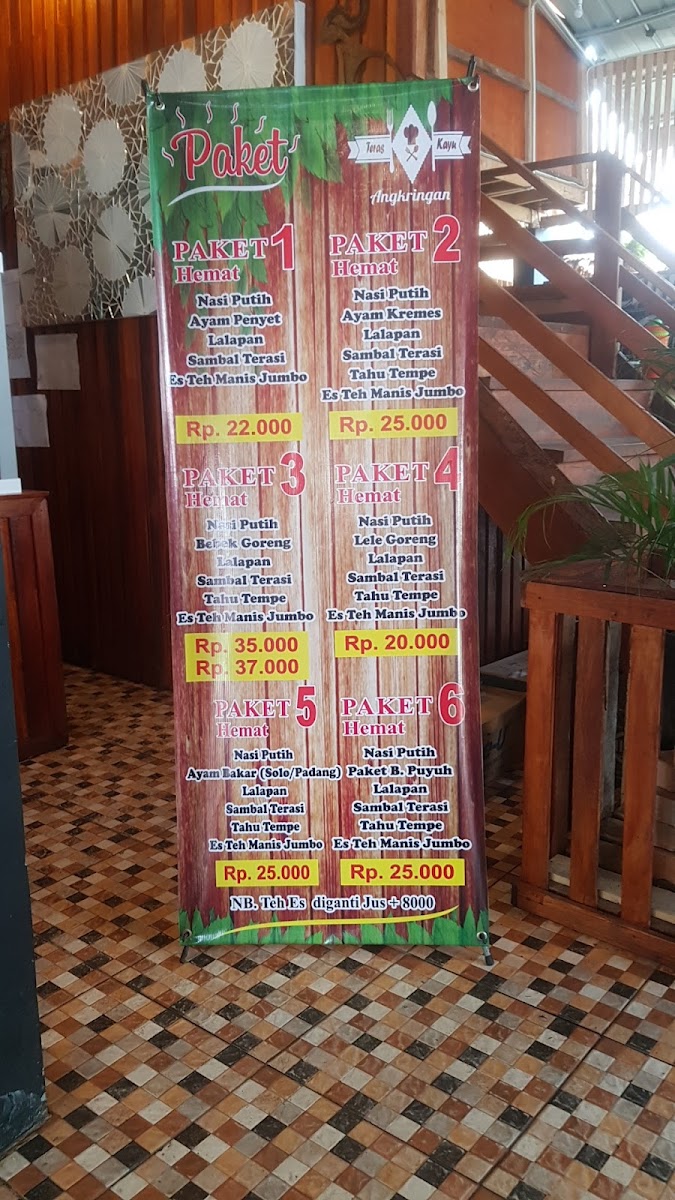 Paket
Teras Kayu
Angkringan
PAKET 1
Hemat
Nasi Putih
Ayam Penyet
Lalapan
Sambal Terasi
Es Teh Manis Jumbo
Rp. 22.000
PAKET 2
Hemat
Nasi Putih
Ayam Kremes
Lalapan
Sambal Terasi
Tahu Tempe
Es Teh Manis Jumbo
Rp. 25.000
PAKET 3
Hemat
Nasi Putih
Bebek Goreng
Lalapan
Sambal Terasi
Tahu Tempe
Es Teh Manis Jumbo
Rp. 35.000
Rp. 37.000
PAKET 4
Hemat
Nasi Putih
Lele Goreng
Lalapan
Sambal Terasi
Tahu Tempe
Es Teh Manis Jumbo
Rp. 20.000
PAKET 5
Hemat
Nasi Putih
Ayam Bakar (Solo/Padang)
Lalapan
Sambal Terasi
Tahu Tempe
Es Teh Manis Jumbo
Rp. 25.000
PAKET 6
Hemat
Nasi Putih
Paket B. Puyuh
Lalapan
Sambal Terasi
Tahu Tempe
Es Teh Manis Jumbo
Rp. 25.000
NB. Teh Es diganti Jus + 8000